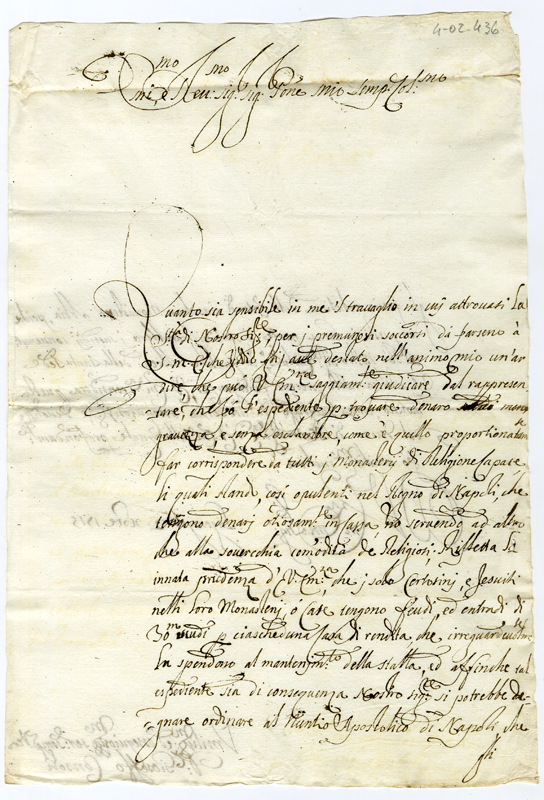 4-02-436
mo mo
Emi. e Reu: sig: sig: Pone mio Semp: Col:mo
Quanto sia sensibile in me il trauaglio in cui attrouasi la
S.tà di Nostro Sig.re per i premurosi soccorsi da farseno à
destato nell'animo mio un'ar
dire, che può V. Em.za saggiam.te giudicare dal rappresen
tare, che p l'espediente p trouare denaro
grauezza, e senza come è quello proportionato
far corrispondere da tutti i Monasterij di Religione
li quali stando, così opulenti nel Regno di Napoli, che
tengono denari otiosam.te in cassa nō seruendo ad altro
che alla souerchia comodità de Religiosi; Rifletta la
innata prudenza d' V. Em.za, che i soli Certosini, e Jesuiti
nelli loro Monasterij, o Case tengono feudi, ed entradi di
30 scudi p ciascheduna Casa di rendita, che
la spendono al mantenim.to della stalla, ed affinche tal
espediente sia di consequenza Nostro Sig.re si potrebbe de
gnare ordinare al Nuntio Apostolico di Napoli, che
gli